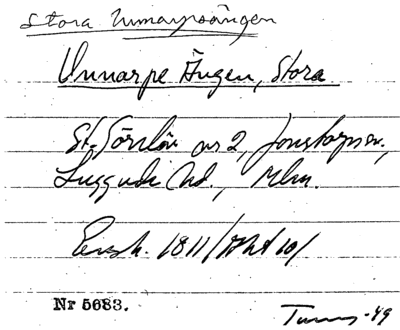 Stora Unnarpsängen
Unnarpe Ängen, Stora
St. Sörslöv nr 2, Jonstorps sn.,
Luggude hd., Mlm.
Ensk. 1811/Akt 10/
Nr 5683.
-49